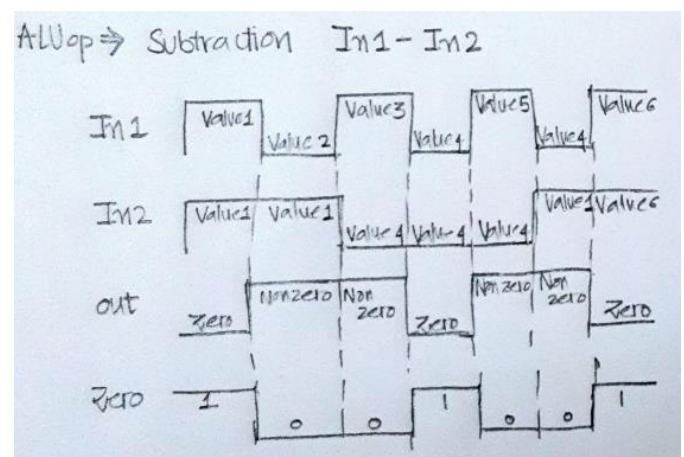 ALUop ⇒ Subtraction In1 - In2
In1 Value1 Value 2 Value3 Value4 Value5 Value4 Value6
In2 Value1 Value1 Value4 Value4 Value4 Value1 Value6
out Zero Nonzero Non zero Zero Non zero Non zero Zero
Zero 1 0 0 1 0 0 1